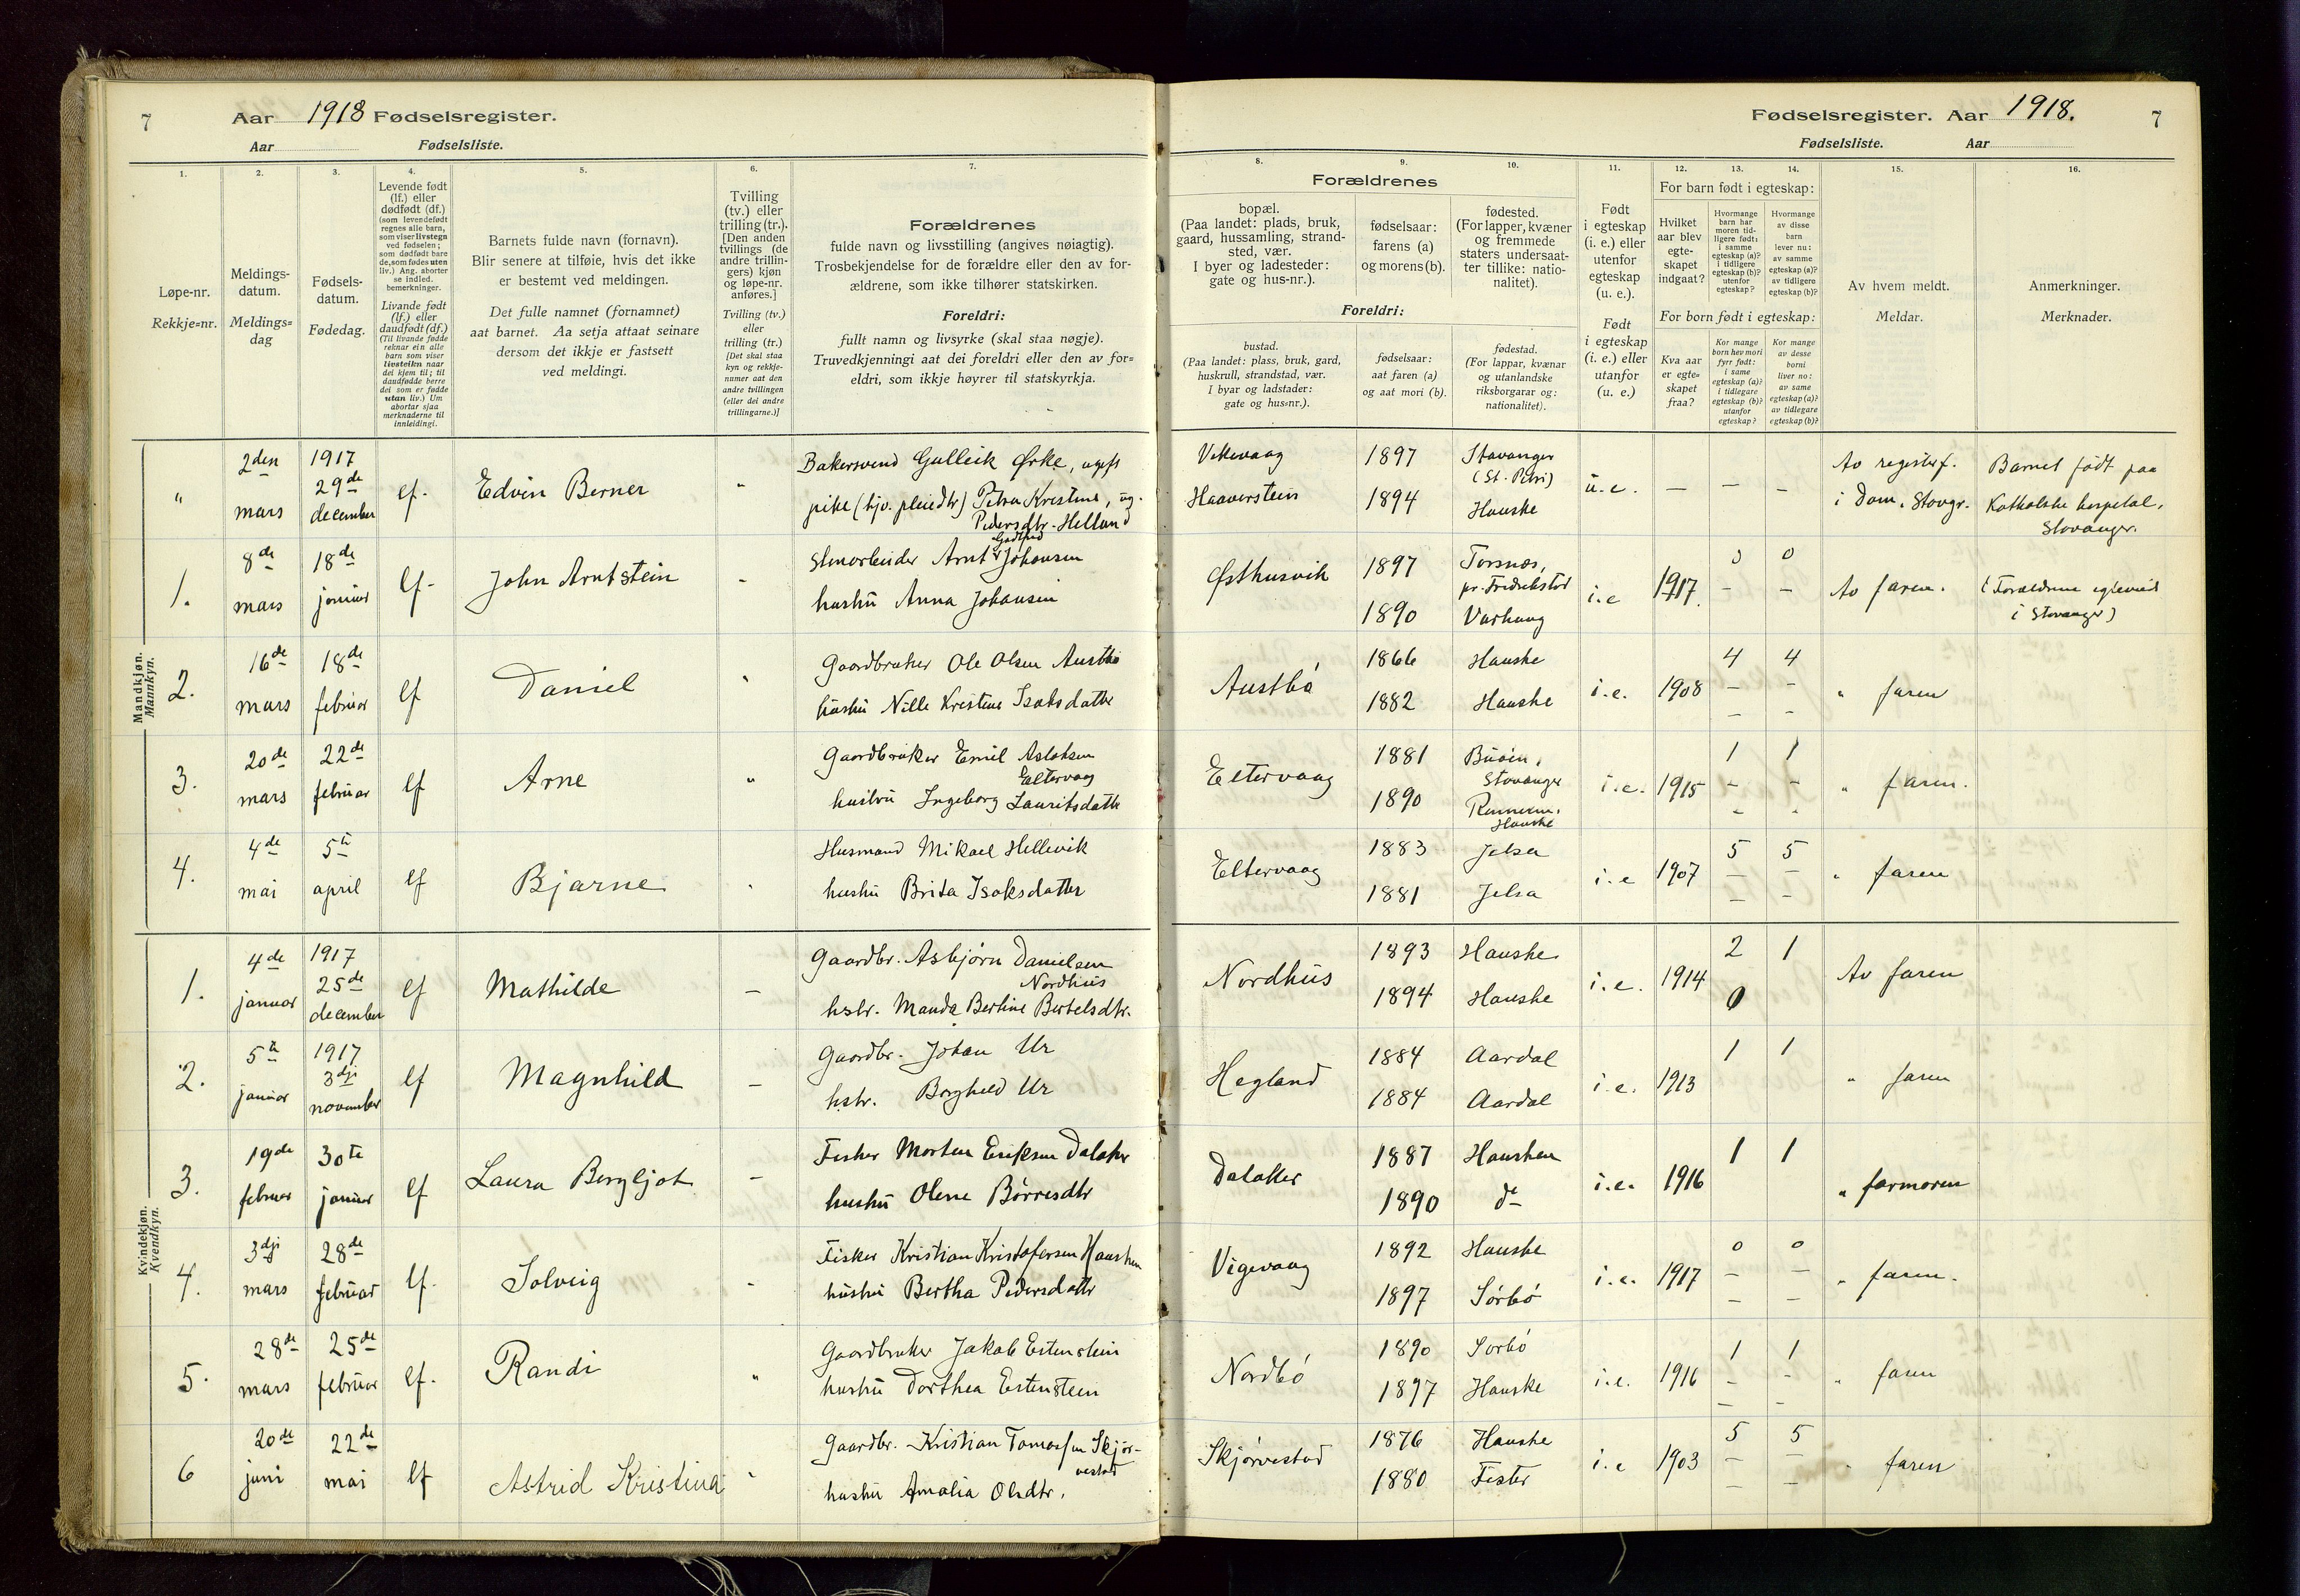 7 Aar 1918 Fødselsregister.
Aar Fødselsliste.
Fødselsregister. Aar 1918. 7
Fødselsliste. Aar
1. 2. 3. 4. 5. 6. 7.
Løpe-nr.
Rekkje=nr.
Meldings-
datum.
Meldings=
dag
Fødsels-
datum.
Fødedag.
Levende født
(lf.) eller
dødfødt (df.)
(som levendefødt
regnes alle barn,
som viser livstegn
ved fødselen;
som dødfødt bare
de, som fødes uten
liv.) Ang. aborter
se indled.
bemerkninger.
Livande født
(lf.) eller
daudfødt (df.)
(Til livande fødde
reknar ein alle
barn som viser
livsteikn naar
dei kjem til; til
daudfødde berre
dei som er fødde
utan liv.) Um
abortar sjaa
merknaderne til
innleidingi.
Barnets fulde navn (fornavn).
Blir senere at tilføie, hvis det ikke
er bestemt ved meldingen.
Det fulle namnet (fornamnet)
aat barnet. Aa setja attaat seinare
dersom det ikkje er fastsett
ved meldingi.
Tvilling
(tv.) eller
trilling (tr.).
[Den anden
tvillings (de
andre trillin-
gers) kjøn
og løpe-nr.
anføres.]
Tvilling (tv.)
eller
trilling (tr.)
[Det skal staa
kyn og rekkje-
numer aat den
andre tvillingen
(eller dei andre
trillingarne.)]
Forældrenes
fulde navn og livsstilling (angives nøiagtig).
Trosbekjendelse for de forældre eller den av for-
ældrene, som ikke tilhører statskirken.
Foreldri:
fullt namn og livsyrke (skal staa nøgje).
Truvedkjenningi aat dei foreldri eller den av for=
eldri, som ikkje høyrer til statskyrkja.
8. 9. 10. 11. 12. 13. 14. 15. 16.
Forældrenes
bopæl.
(Paa landet: plads, bruk,
gaard, hussamling, strand-
sted, vær.
I byer og ladesteder:
gate og hus-nr.).
fødselsaar:
farens (a)
og morens (b).
fødested.
(For lapper, kvæner
og fremmede
staters undersaat-
ter tillike: natio-
nalitet).
Foreldri:
bustad.
(Paa landet: plass, bruk, gard,
huskrull, strandstad, vær.
I byar og ladstader:
gate og hus=nr.).
fødselsaar:
aat faren (a)
og aat mori (b).
fødestad.
(For lappar, kvænar
og utanlandske
riksborgarar og:
nationalitet).
Født
i egteskap
(i. e.) eller
utenfor
egteskap
(u. e.).
Født
i egteskap
(i. e.) eller
utanfor
(u. e.)
For barn født i egteskap:
Hvilket
aar blev
egte-
skapet
indgaat?
Hvormange
barn har
moren tid-
ligere født:
i samme
egteskap (a)?
i tidligere
egteskap (b)?
utenfor
egteskap?
Hvormange
av disse
barn
lever nu:
av samme
egteskap (a)?
av tidligere
egteskap (b)?
For born født i egteskap:
Kva aar
er egte=
skapet
fraa?
Kor mange
born hev mori
fyrr født:
i same
egteskap (a)?
i tidlegare
egteskap (b)?
utanfor
egteskap?
Kor mange
av desse
borni
liver no:
av same
egteskap (a)?
av tidlegare
egteskap (b)?
Av hvem meldt.
Meldar.
Anmerkninger.
Merknader.
Mandkjøn.
Mannkyn.
" 2den mars 1917 29de december lf. Edvin Berner " Bakersvend Gulleik Ørke, ugift
pike (hjv. pleiedtr) Petra Kristine, ug.
Pedersdtr. Helland
Vikevaag 1897 Stavanger (St. Petri)
Haaverstein 1894 Hauske u.e. — — — Av registerf. i Dom. Stavgr. Barnet født paa
Katholske hospital,
Stavanger.
1. 8de mars 18de januar lf- John Arntstein - Stenarbeider Arnt Godtfred Johansen
hustru Anna Johansen
Østhusvik 1897 Torsnæs, pr. Fredrikstad
1890 Varhaug i.e 1917. 0 0 Av faren. (Forældrene egteviet
i Stavanger)
2. 16de mars 18de februar lf Daniel " Gaardbruker Ole Olsen Austbø
hustru Nille Kristine Isaksdatter
Austbö 1866 Hauske
1882 Hauske i.e. 1908 4 4 " faren
3. 20de mars 22de februar lf Arne " Gaardbruker Emil Aslaksen
Eltervaag
hustru Ingeborg Lauritsdattr
Eltervaag 1881 Buöen, Stavanger
1890 Rennesø, Hauske i.e. 1915 1 1 " faren.
4. 4de mai 5te april lf Bjarne " Husmand Mikael Hellevik
hustru Brita Isaksdatter
Eltervaag 1883 Jelsa
1881 Jelsa i.e 1907 5 5 " faren
Kvindekjøn.
Kvendkyn.
1. 4de januar 1917 25de december lf Mathilde — Gaardbr. Asbjørn Danielsen
Nordhus
hstr. Manda Bertine Bertelsdtr.
Nordhus 1893 Hauske
1894 Hauske i.e. 1914 2 1 0 Av faren
2. 5te januar 1917 3dji november lf Magnhild — Gaardbr. Johan Ur
hstr. Borghild Ur
Hegland 1884 Aardal
1884 Aardal i.e. 1913 1 1 " faren
3. 19de februar 30te januar lf Laura Bergljot — Fisker Morten Eriksen Dalaker
hustru Olene Børresdtr
Dalaker 1887 Hausken
1890 do i.e. 1916 1 1 " farmoren
4. 3dji mars 28de februar lf. Solveig - Fisker Kristian Kristofersen Hausken
hustru Bertha Pedersdattr
Vigevaag 1892 Hauske
1897 Sörbö i.e. 1917 0 0 " faren.
5. 28de mars 25de februar lf. Randi " Gaardbruker Jakob Estenstein
hustru Dorthea Estenstein
Nordbö 1890 Sörbö
1897 Hauske i.e. 1916 1 1 " faren
6 20de juni 22de mai lf Astrid Kristina " Gaardbr. Kristian Tomassen Skjör-
vestad
hustru Amalia Olsdtr.
Skjörvestad 1876 Hauske
1880 Fister i.e 1903 5 5 " faren